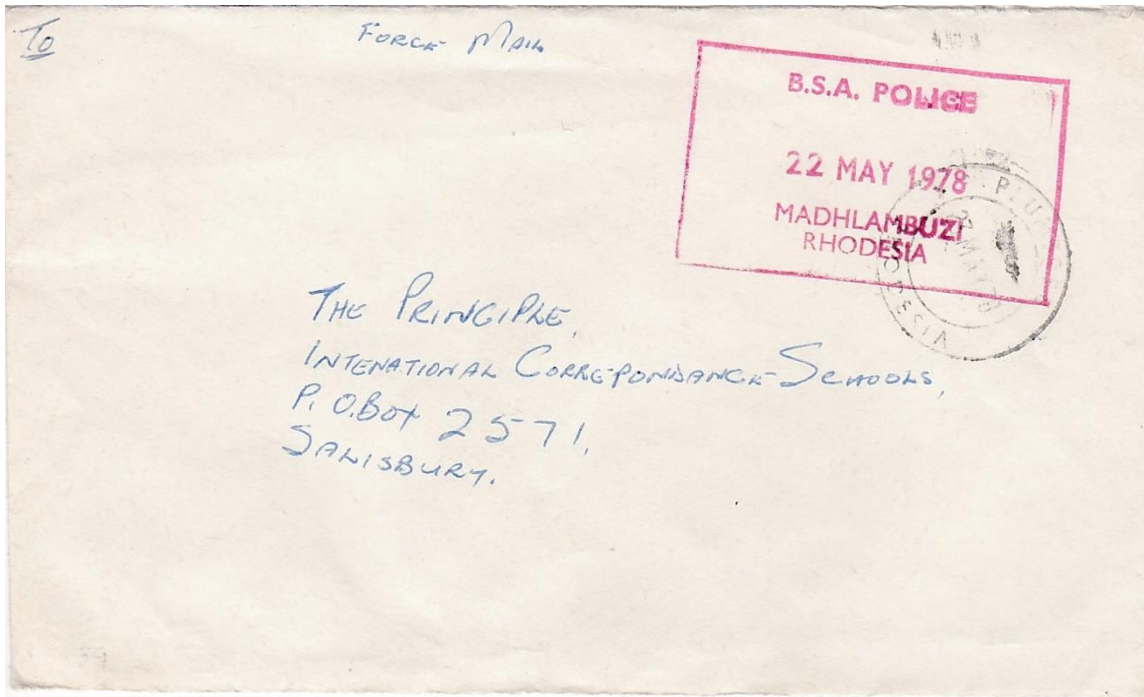 To
FORCE MAIL
B.S.A. POLICE
22 MAY 1978
MADHLAMBUZI
RHODESIA
THE PRINCIPLE,
INTENATIONAL CORREPONDANCE SCHOOLS,
P.O.BOX 2571,
SALISBURY.